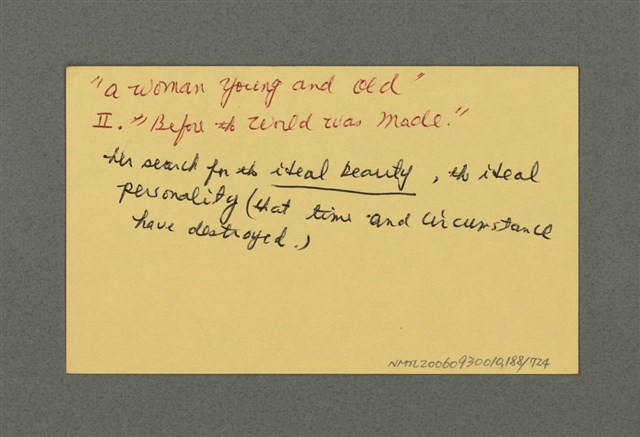 "A Woman Young and Old"
II. "Before th World was Made."
Her search for th ideal beauty, th ideal
personality (that time and circumstance
have destroyed.)
NMTL20060930010,188/724